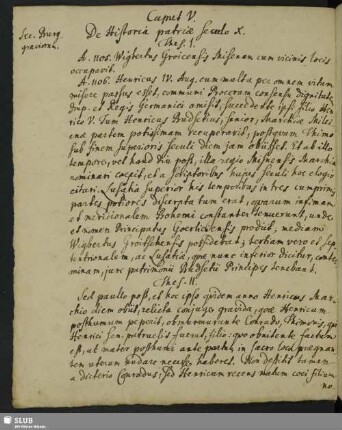 Caput V.
De Historia patriæ seculo X.
Thes. I.
A. 1105. Wigbertus Groicensis Misenam cum vicinis locis
occupavit.
A. 1106. Henricus IV. Aug. cum multa per omnem vitam
misere passus esset, communi Procerum consensu dignitatem
Imp. et Regis Germanici amisit, succedente ipsi filio Henri-
co V. Tum Henricus senior, Marchiæ Misne
næ partem potissimam recuperavit, postquam Thimo
sub finem superioris seculi diem jam obiisset. Et ab illo
tempore, vel haud diu post, illa regio Misnensis Marchia
nominari coepit, et a scriptoribus hujus seculi hoc elogio
citari. Lusatia superior his temporibus in tres cumprimis
partes potiores discrepta tum erat, quarum infimam
et meridionalem Bohemi constanter tenuerunt, unde
et nomen Principatus Goerlicensis prodiit, mediam
Wigbertus Groitschensis possidebat, tertiam vero et Sep-
tentrionalem, ac Lusatiæ, quæ nunc inferior dicitur, conter-
minam, jure patrimonii Principes tenebant.
Thes. II.
Sed paullo post, et hoc ipso quidem anno Henricus Mar-
chio diem obiit, relicta conjuge gravida, quæ Henricum
posthumum peperit, obmurmurante Conrado, Thimonis, qui
Henrici sen. patruelis fuerat, filio: quo obnitente factum
est, ut mater posthumi ante partum, in sacro loco prægnan-
tem uterum nudare necesse haberet. Non destitit tamen
a dicterio Conradus, sed Henricum recens natum coci filium
no.
SLUB